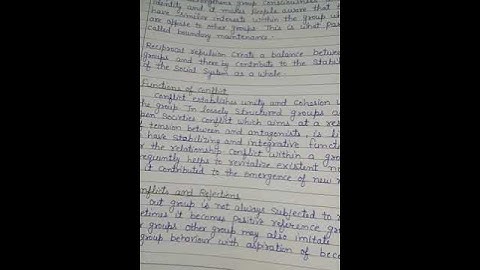 group consciousness
identity and it makes people aware that
have similar interests within the group wh
are oppose to other groups. This is what
called boundary maintenance.
Reciprocal repulsion create a balance betwee
groups and there by contribute to the stabi
of the Social System as a whole.
Functions of conflict
Conflict establishes unity and cohesion
the group In loosely structured groups a
pen Societies conflict which aims at a re
tension between and antagonists, is li
have stabilizing and integrative functi
r the relationship conflict within a gro
requently helps to revitalize existent no
it contributed to the emergence of new
nflicts and Rejections
out group is not always subjected to
etimes it becomes positive reference gr
r groups other group may also imitate
group behaviour with aspiration of bec